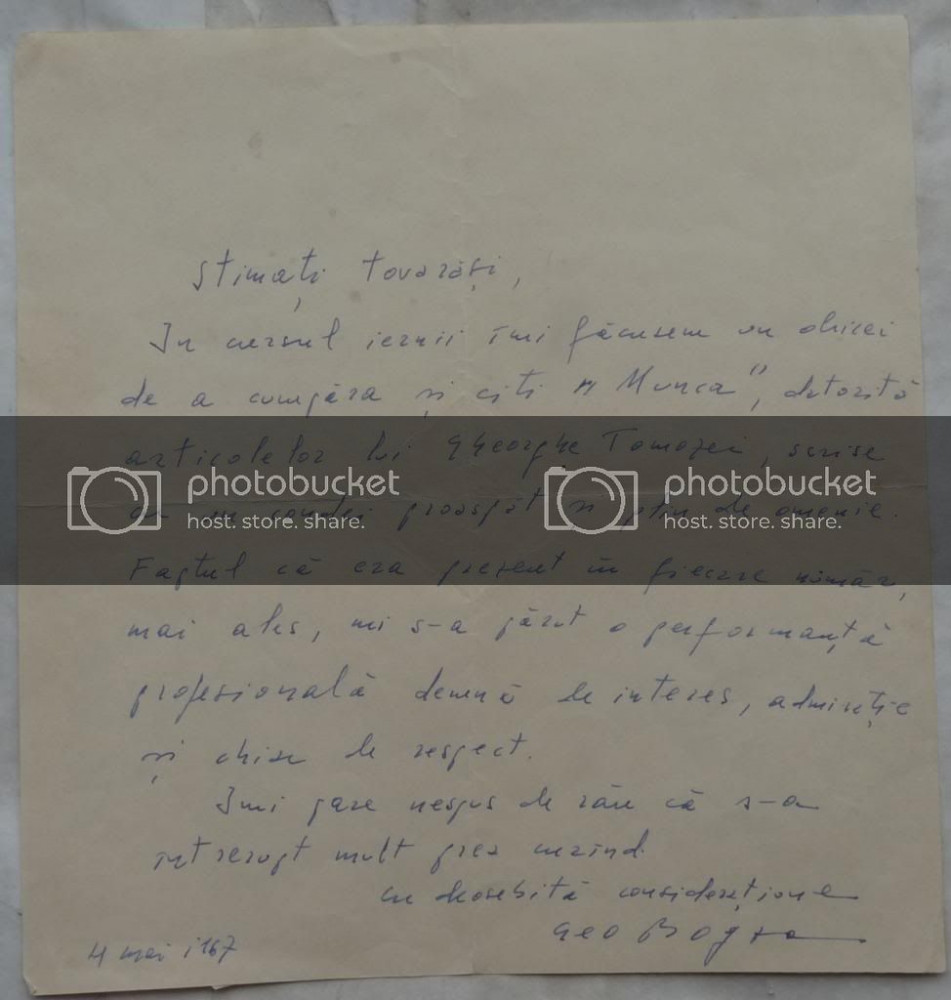 Stimați tovarăși,
In cursul iernii îmi făcusem un obicei
de a cumpăra și citi "Munca", datorită
articolelor lui Gheorghe Tomozei, scrise
photobucket photobucket
cu un condei proaspăt și plin de omenie.
host. store. share. host. store. share.
Faptul că era prezent în fiecare număr,
mai ales, mi s-a părut o performanță
profesională demnă de interes, admirație
și chiar de respect.
Imi pare nespus de rău că s-a
intrerupt mult prea curînd.
cu deosebită considerațiune
Geo Bogza
4 mai 1967